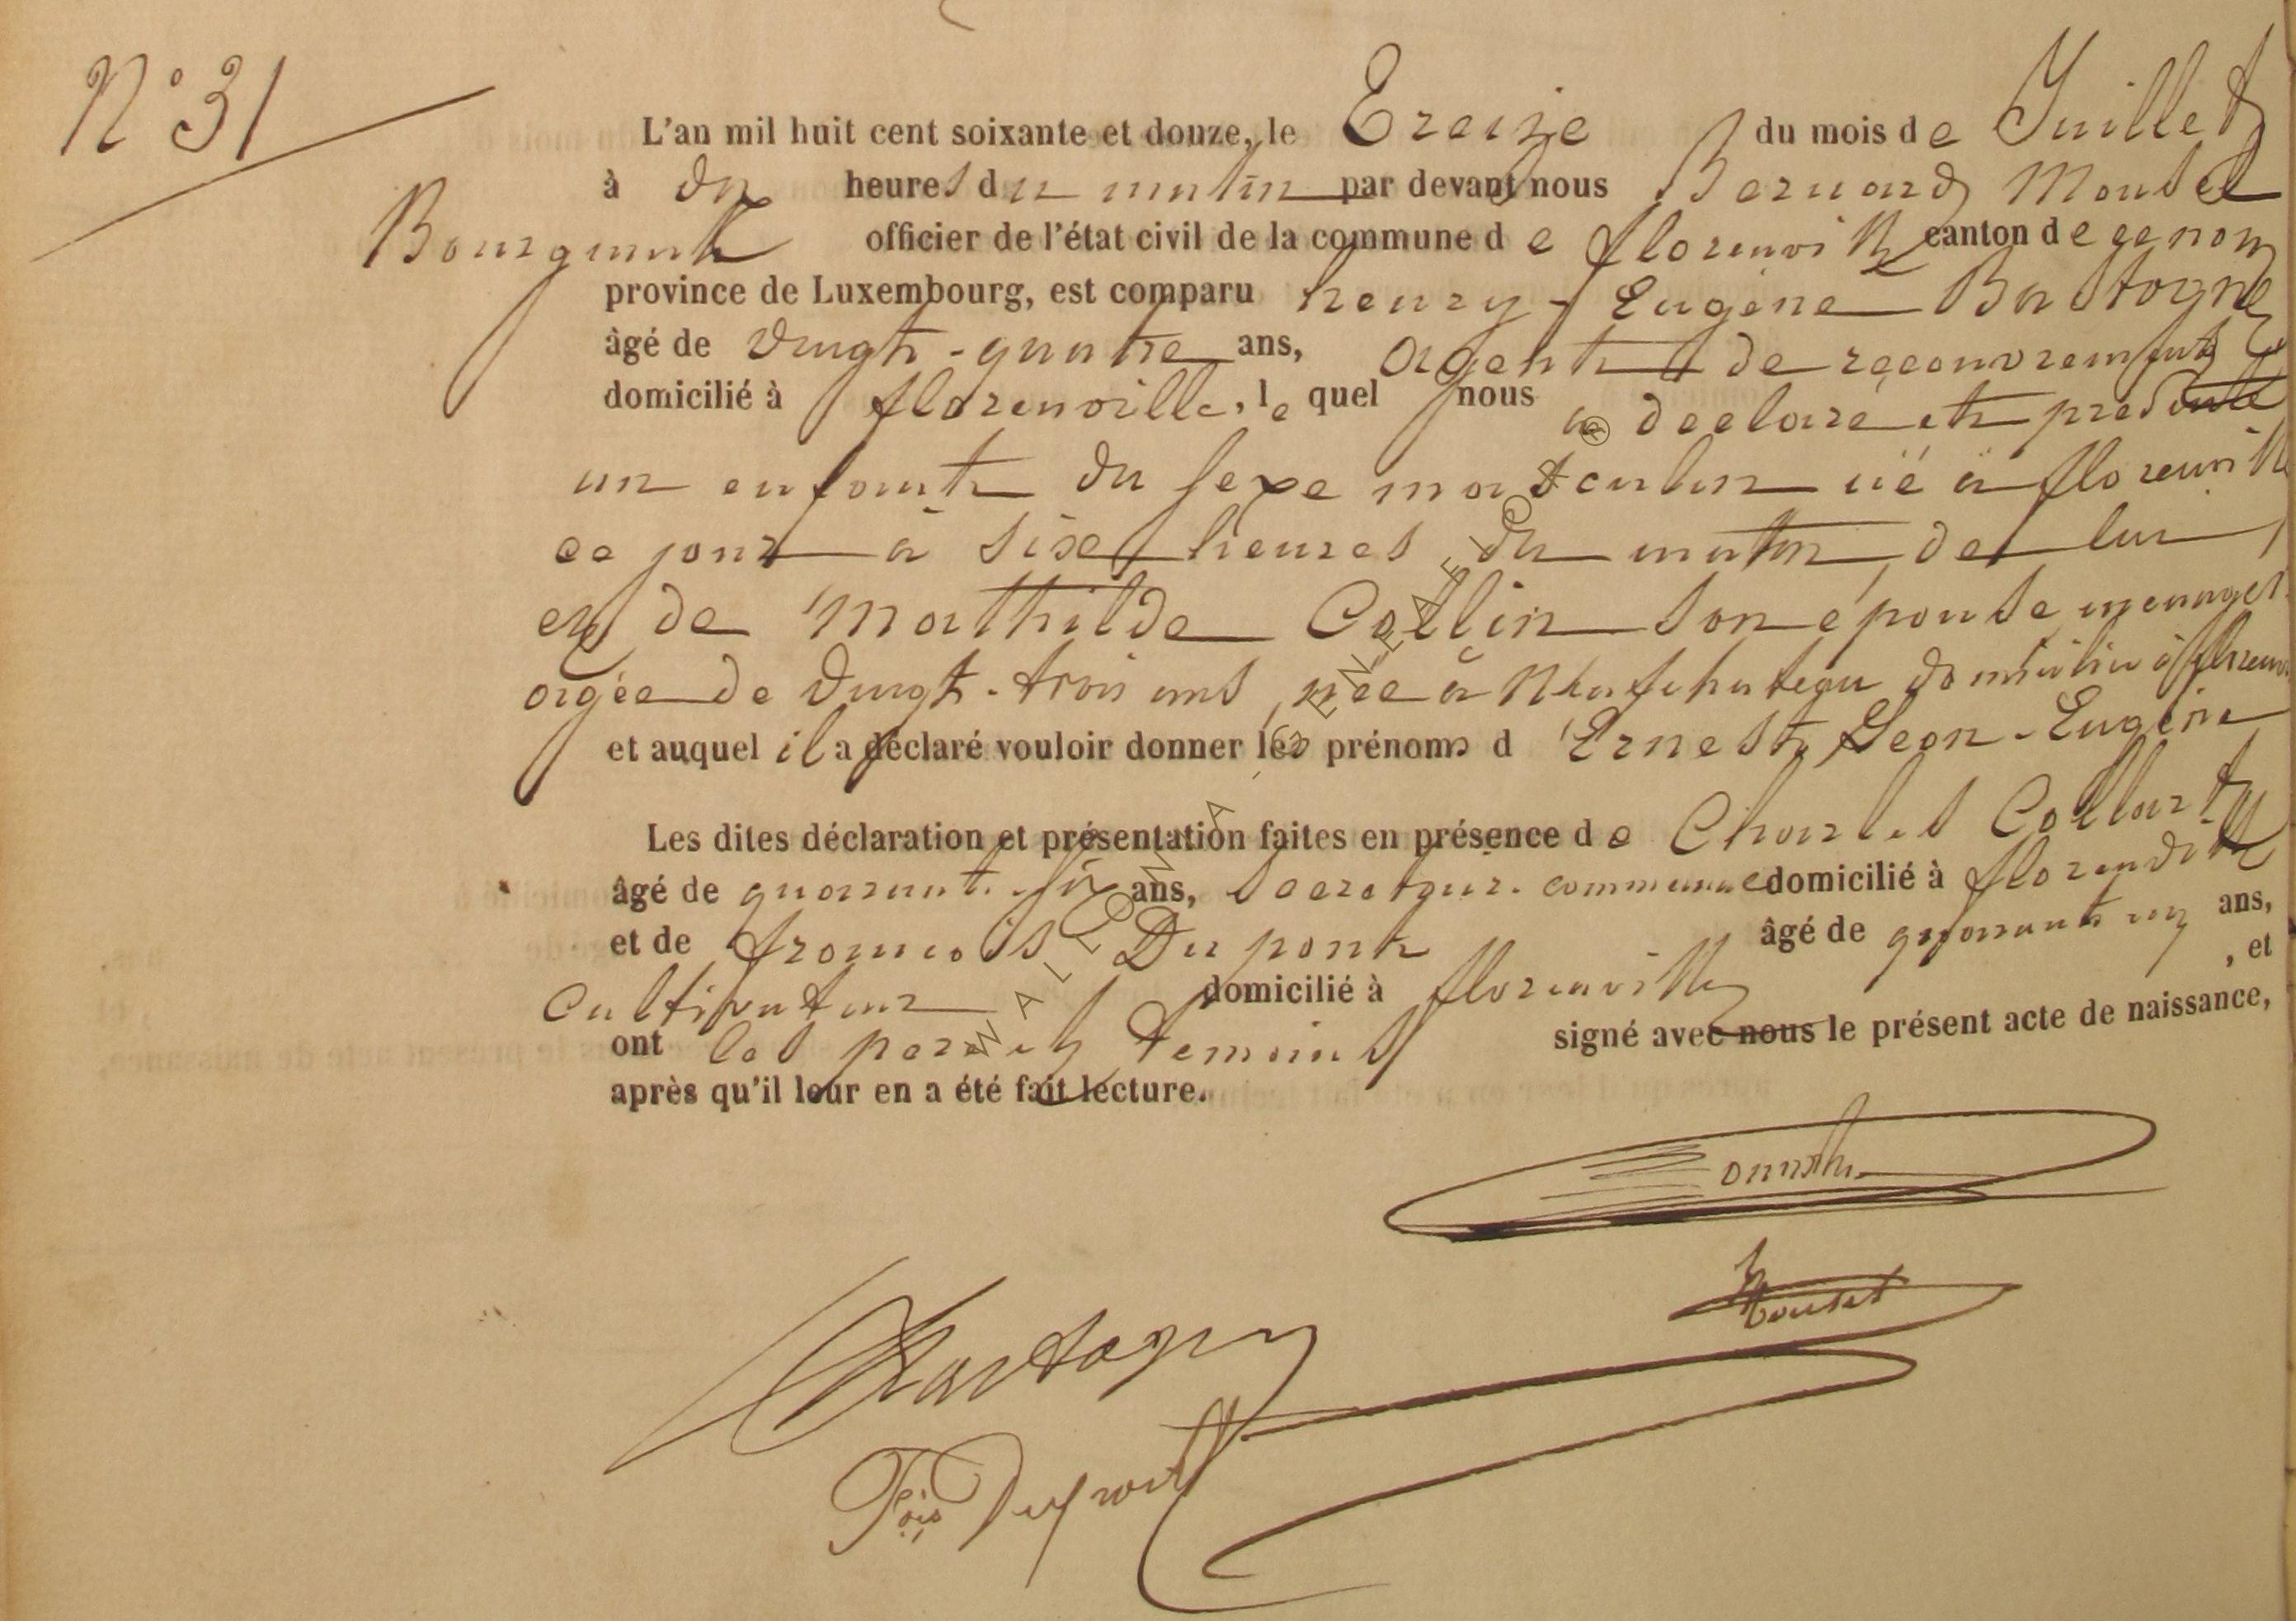 N° 31
L'an mil huit cent soixante et douze, le Treize du mois de Juillet
à dix heures du matin par devant nous Bernard Mousel
Bourgmestre officier de l'état civil de la commune de florenville canton de
province de Luxembourg, est comparu henry-Eugène Bastogne
âgé de vingt-quatre ans, agent de recouvrements
domicilié à florenville, le quel nous a declaré et presenté
un enfant du sexe masculin né à florenville
ce jour à six heures du matin, de lui
et de Mathilde Collin son épouse menagere
agée de vingt-trois ans, née à Neufchateau domiciliée à florenv.
et auquel il a déclaré vouloir donner les prénoms d Ernest, Leon-Eugène
Les dites déclaration et présentation faites en présence de Charles Collart
âgé de quarante six ans, Secretaire communal domicilié à florenville
et de francois Dupont âgé de quarante ans,
cultivateur domicilié à florenville , et
ont les père et temoins signé avec nous le présent acte de naissance,
après qu'il leur en a été fait lecture.
Mousel
Bastogne
Fois Dupont
WALLONIA GENEALOGIE ®